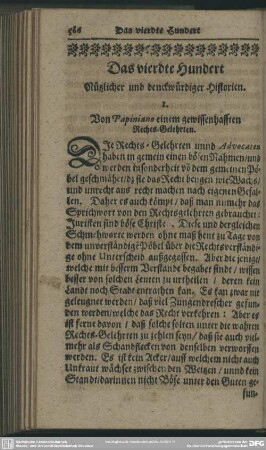 566 Das vierdte Hundert
Das vierdte Hundert
Nützlicher und denckwürdiger Historien.
I.
Von Papiniano einem gewissenhafften
Rechts-Gelehrten.
DIe Rechts-Gelehrten unnd Advocaten
haben in gemein einen bösen Nahmen/und
werden insonderheit võ dem gemeinen Pö-
bel geschmähet/dz sie das Recht beygen wie Wachs/
und unrecht aus recht machen nach eigenen Gefal-
len. Daher es auch kömpt/ daß man nunmehr das
Sprichwort von den Rechtsgelehrten gebrauchet:
Juristen sind böse Christe. Diese und dergleichen
Schmachworte werden ohne maß heut zu Tage von
dem unverständigē Pöbel über die Rechtsverständi-
ge ohne Unterscheid außgegossen. Aber die jenige/
welche mit besserm Verstande begabet sind/ wissen
besser von solchen Leuten zu urtheilen/ deren kein
Lande noch Stadt entrathen kan. Es kan zwar nit
geleugnet werden/ daß viel Zungendrescher gefun-
den werden/welche das Recht verkehren: Aber es
ist ferne davon/ daß solche solten unter die wahren
Rechts-Gelehrten zu zehlen seyn/ daß sie auch viel-
mehr als Schandflecken von denselben verworffen
werden. Es ist kein Acker/auff welchem nicht auch
Unkraut wächset zwischen den Weitzen/ unnd kein
Stand/ darinnen nicht Böse unter den Guten ge-
fun-